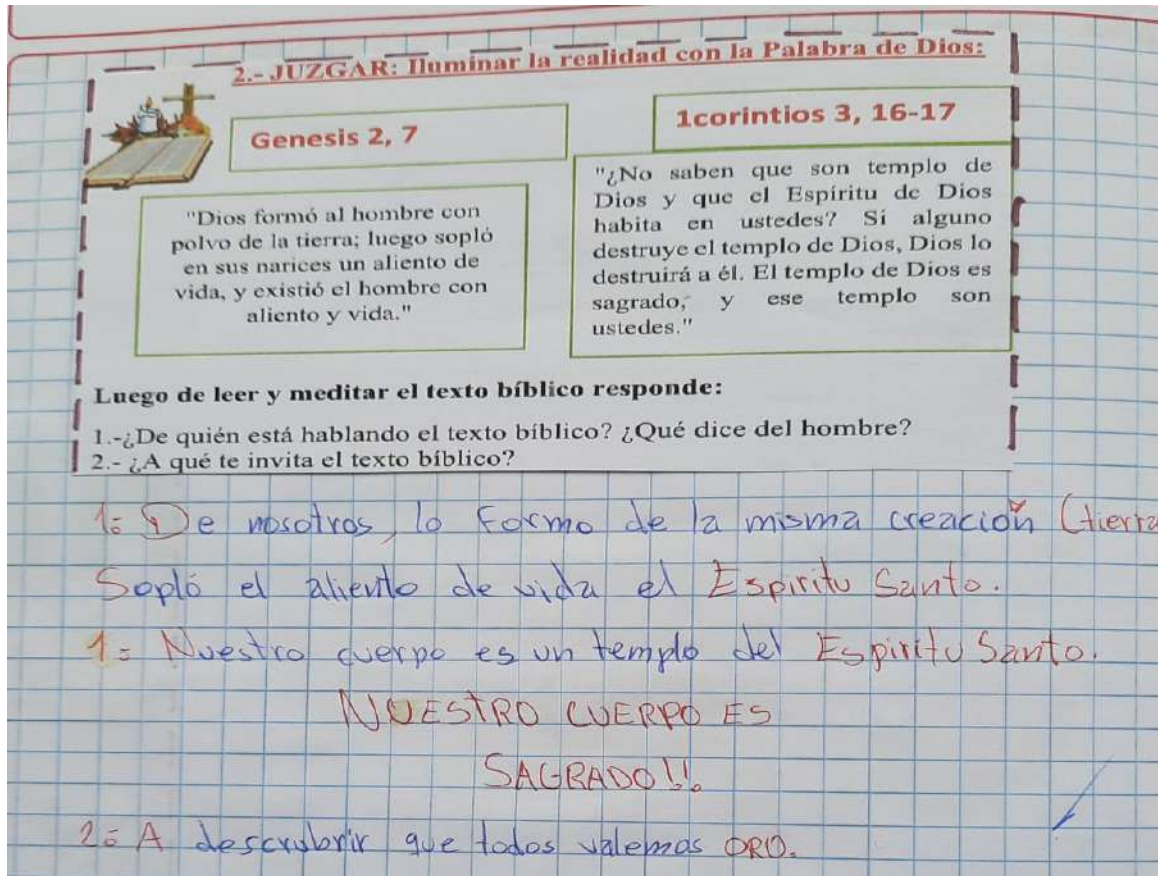 2.- JUZGAR: Iluminar la realidad con la Palabra de Dios:
Genesis 2, 7
"Dios formó al hombre con
polvo de la tierra; luego sopló
en sus narices un aliento de
vida, y existió el hombre con
aliento y vida."
1corintios 3, 16-17
"¿No saben que son templo de
Dios y que el Espíritu de Dios
habita en ustedes? Si alguno
destruye el templo de Dios, Dios lo
destruirá a él. El templo de Dios es
sagrado, y ese templo son
ustedes."
Luego de leer y meditar el texto bíblico responde:
1.-¿De quién está hablando el texto bíblico? ¿Qué dice del hombre?
2.- ¿A qué te invita el texto bíblico?
1= De nosotros, lo Formo de la misma creación (tierra
Sopló el aliento de vida el Espiritu Santo.
1= Nuestro cuerpo es un templo del Espiritu Santo.
NUESTRO CUERPO ES
SAGRADO!!
2= A descrubrir que todos valemos ORO.